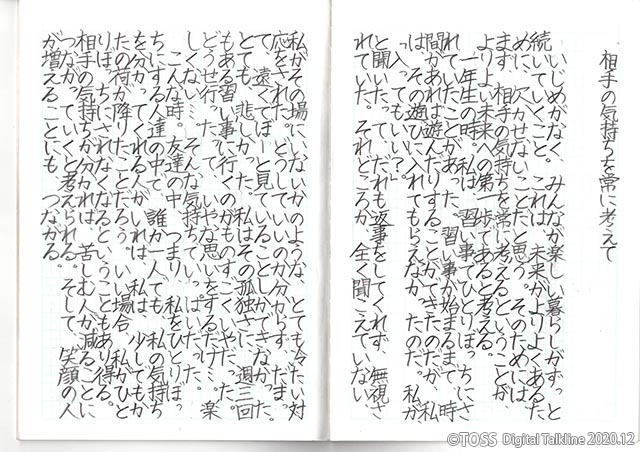 相手の気持ちを常に考えて
いじめがなく、みんなが楽しい暮らしがずっと
続いていくこと。これは、未来がよりよくあるた
めに、欠かせないことだと思う。そのためには、
まず、相手の気持ちを常に考えるということが、
よりよい未来への第一歩であると考える。
一年生の時。私は、習い事でひとりぼっちにさ
れていたことがあった。習い事が始まるまで、時
間があれば遊んだりすることができたのだが、私
は、その遊びに入れてもらえなかったのだ。私が
「入ってもいい？」
と聞いても、だれも返事をしてくれず、無視さ
れていた。それどころか、全く聞こえていない、
私がその場にいないかのような、とても冷たい対
応をされた。どうしていいのか分からず、だまっ
て、遠くでぼーと見ていることしかできなかった。
とても、悲しかった。私はその孤独さに、週三回
もある習い事に行くのがものすごくいやだった。
どうせ行ったって、いやな思いをするだけ。楽
しくない…。そんな気持ちでいっぱいだった。
こんな時。友達の中、つまり、私をひとりぼっ
ちにする人達の中で、誰か一人でも、私の気持ち
を分かってくれる人がいれば、私は、少しでもか
たの荷が降りたことだろう。いい場合、私がひと
りぼっちにされなくなるということもあり得る。
相手の気持ちが分かれば、苦しむ人が減ることに
つながっていくと考えられる。そして、笑顔の人
が増えることにも、つながる。
©TOSS Digital Talkline 2020.12